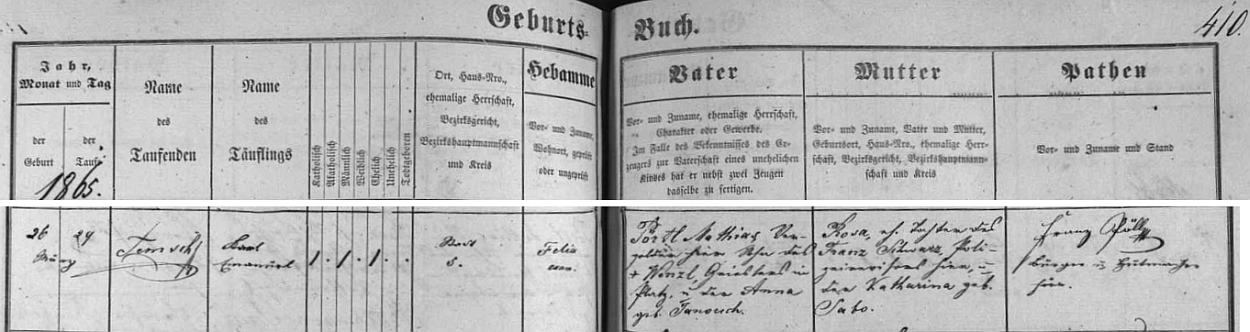 Geburts-Buch.
410.
Jahr,
Monat und Tag
der
Geburt
der
Taufe
1865.
Name
des
Taufenden
Name
des
Täuflings
Katholisch
Akatholisch
Männlich
Weiblich
Ehelich
Unehelich
Todtgeboren
Ort, Haus-Nro.,
ehemalige Herrschaft,
Bezirksgericht,
Bezirkshauptmannschaft
und Kreis
Hebamme
Vor- und Zuname,
Wohnort, geprüft
oder ungeprüft
Vater
Vor- und Zuname, ehemalige Herrschaft,
Charakter oder Gewerbe.
Im Falle des Bekenntnisses des Er-
zeugers zur Vaterschaft eines unehelichen
Kindes hat er nebst zwei Zeugen
dasselbe zu fertigen.
Mutter
Vor- und Zuname, Vater und Mutter,
Geburtsort, Haus-Nro., ehemalige Herr-
schaft, Bezirksgericht, Bezirkshauptmann-
schaft und Kreis
Pathen
Vor- und Zuname und Stand
26 29
März
Karl
Emanuel
1. 1. 1.
Stadt
8.
Felia
Pörtl Mathias Ver-
golder hier Sohn des
+ Wenzl,
Platz, u. der Anna
geb. Janovsch.
Rosa, eh. Tochter des
Franz Schwarz, Poli-
hier, u.
der Katharina geb.
Sabo.
Franz Pöll
bürger. Hutmacher
hier.